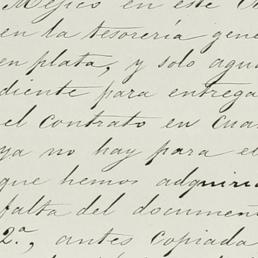 Mejico en este
en la tesorería gene
en plata, y solo agua
diente para entrega
el contrato en cua
ya no hay para el
que hemos adquiri
falta del documen
2.ª, antes copiada